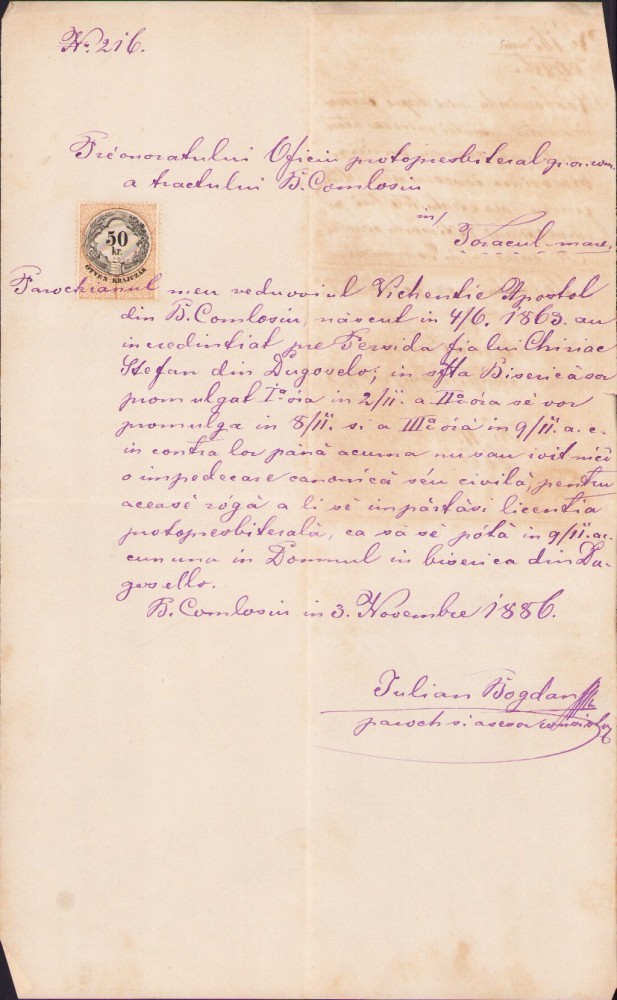 Nr. 216.
Préonoratului Oficiu protopresbiteral gr. or. rom.
a tractului B. Comlosiu
in/
Toracul-mare,
50
kr.
ÖTVEN KRAJCZÁR
Parochianul meu veduvoiul Vichentie Apostol
din B. Comlosiu, născut in 4/6. 1863. au
incredintiat pre Persida fia lui Chiriac
Stefan din Dugoselo; in sfta Biserică sa
promulgat I-a óia in 2/11. a II-a óia sé vor
promulga in 8/11. si a III-a óia in 9/11. a. c.
in contra lor până acuma nu sau ivit nici
o impedecare canonică séu civilă, pentru
aceasé rógă a li sé impărtăsi licentia
protopresbiterală, ca să sé pótă in 9/11. a c.
cununa in Domnul in biserica din Du-
gosello.
B. Comlosiu in 3. Novembre 1886.
Iulian Bogdan
paroch si asesor